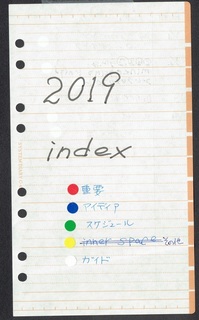 2019
index
重要
アイディア
スケジュール
inner space love
ガイド